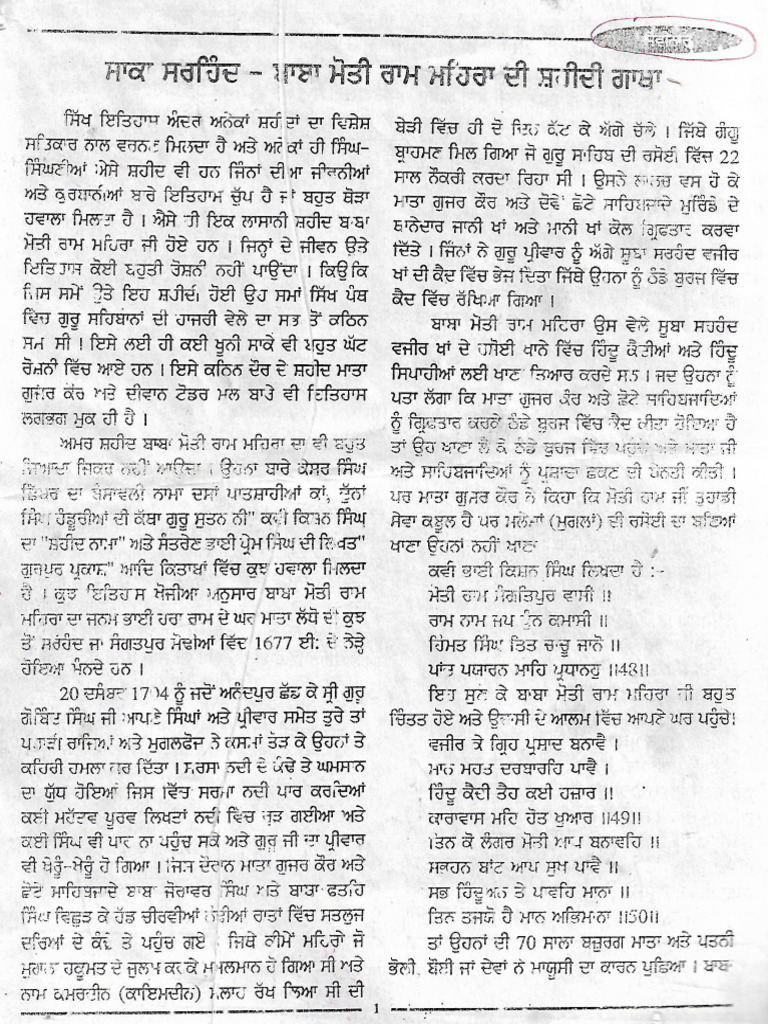 ਸਾਕਾ ਸਰਹਿੰਦ – ਬਾਬਾ ਮੋਤੀ ਰਾਮ ਮਹਿਰਾ ਦੀ ਸ਼ਹੀਦੀ ਗਾਥਾ
ਸਿੱਖ ਇਤਿਹਾਸ ਅੰਦਰ ਅਨੇਕਾਂ ਸ਼ਹੀਦਾਂ ਦਾ ਵਿਸ਼ੇਸ਼
ਸਤਿਕਾਰ ਨਾਲ ਵਰਨਣ ਮਿਲਦਾ ਹੈ ਅਤੇ ਅਨੇਕਾਂ ਹੀ ਸਿੰਘ-
ਸਿੰਘਣੀਆਂ ਐਸੇ ਸ਼ਹੀਦ ਵੀ ਹਨ ਜਿੰਨਾਂ ਦੀਆਂ ਜੀਵਨੀਆਂ
ਅਤੇ ਕੁਰਬਾਨੀਆਂ ਬਾਰੇ ਇਤਿਹਾਸ ਚੁੱਪ ਹੈ ਜਾਂ ਬਹੁਤ ਥੋੜਾ
ਹਵਾਲਾ ਮਿਲਦਾ ਹੈ । ਐਸੇ ਹੀ ਇਕ ਲਾਸਾਨੀ ਸ਼ਹੀਦ ਬਾਬਾ
ਮੋਤੀ ਰਾਮ ਮਹਿਰਾ ਜੀ ਹੋਏ ਹਨ । ਜਿਨ੍ਹਾਂ ਦੇ ਜੀਵਨ ਉਤੇ
ਇਤਿਹਾਸ ਕੋਈ ਬਹੁਤੀ ਰੋਸ਼ਨੀ ਨਹੀਂ ਪਾਉਂਦਾ । ਕਿਉਂਕਿ
ਜਿਸ ਸਮੇਂ ਉਤੇ ਇਹ ਸ਼ਹੀਦੀ ਹੋਈ ਉਹ ਸਮਾਂ ਸਿੱਖ ਪੰਥ
ਵਿੱਚ ਗੁਰੂ ਸਹਿਬਾਨਾਂ ਦੀ ਹਾਜਰੀ ਵੇਲੇ ਦਾ ਸਭ ਤੋਂ ਕਠਿਨ
ਸਮਾਂ ਸੀ । ਇਸੇ ਲਈ ਹੀ ਕਈ ਖੂਨੀ ਸਾਕੇ ਵੀ ਬਹੁਤ ਘੱਟ
ਰੋਸ਼ਨੀ ਵਿੱਚ ਆਏ ਹਨ । ਇਸੇ ਕਠਿਨ ਦੌਰ ਦੇ ਸ਼ਹੀਦ ਮਾਤਾ
ਗੁਜਰ ਕੌਰ ਅਤੇ ਦੀਵਾਨ ਟੋਡਰ ਮਲ ਬਾਰੇ ਵੀ ਇਤਿਹਾਸ
ਲਗਭਗ ਮੁਕ ਹੀ ਹੈ ।
ਅਮਰ ਸ਼ਹੀਦ ਬਾਬਾ ਮੋਤੀ ਰਾਮ ਮਹਿਰਾ ਦਾ ਵੀ ਬਹੁਤ
ਜਿਆਦਾ ਜਿਕਰ ਨਹੀਂ ਆਉਂਦਾ । ਉਹਨਾਂ ਬਾਰੇ ਕੇਸਰ ਸਿੰਘ
ਛਿੱਬਰ ਦਾ ਬੰਸਾਵਲੀ ਨਾਮਾ ਦਸਾਂ ਪਾਤਸ਼ਾਹੀਆਂ ਕਾਂ,
ਸਿੰਘ ਹੰਡੂਰੀਆਂ ਦੀ ਕੱਥਾ ਗੁਰੂ ਸੁਤਨ ਨੀ" ਕਵੀ ਕਿਸ਼ਨ ਸਿੰਘ
ਦਾ "ਸ਼ਹੀਦ ਨਾਮਾ" ਅਤੇ ਸੰਤਰੇਣ ਭਾਈ ਪ੍ਰੇਮ ਸਿੰਘ ਦੀ ਲਿਖਤ"
ਗੁਰਪੁਰ ਪ੍ਰਕਾਸ਼" ਆਦਿ ਕਿਤਾਬਾਂ ਵਿੱਚ ਕੁਝ ਹਵਾਲਾ ਮਿਲਦਾ
ਹੈ । ਕੁਝ ਇਤਿਹਾਸ ਖੋਜੀਆ ਅਨੁਸਾਰ ਬਾਬਾ ਮੋਤੀ ਰਾਮ
ਮਹਿਰਾ ਦਾ ਜਨਮ ਭਾਈ ਹਰਾ ਰਾਮ ਦੇ ਘਰ ਮਾਤਾ ਲੱਧੋ ਦੀ ਕੁਝ
ਤੋਂ ਸਰਹੰਦ ਜਾਂ ਸੰਗਤਪੁਰ ਸੋਢੀਆਂ ਵਿੱਚ 1677 ਈ: ਦੇ ਨੇੜੇ
ਹੋਇਆ ਮੰਨਦੇ ਹਨ ।
20 ਦਸੰਬਰ 1704 ਨੂੰ ਜਦੋਂ ਅਨੰਦਪੁਰ ਛੱਡ ਕੇ ਸ੍ਰੀ ਗੁਰੂ
ਗੋਬਿੰਦ ਸਿੰਘ ਜੀ ਆਪਣੇ ਸਿੰਘਾਂ ਅਤੇ ਪ੍ਰੀਵਾਰ ਸਮੇਤ ਤੁਰੇ ਤਾਂ
ਪਹਾੜੀ ਰਾਜਿਆਂ ਅਤੇ ਮੁਗਲਫੋਜ ਨੇ ਕਸਮਾਂ ਤੋੜ ਕੇ ਉਹਨਾਂ ਤੇ
ਕਹਿਰੀ ਹਮਲਾ ਕਰ ਦਿੱਤਾ । ਸਰਸਾ ਨਦੀ ਦੇ ਕੰਢੇ ਤੇ ਘਮਸਾਨ
ਦਾ ਯੁੱਧ ਹੋਇਆਂ ਜਿਸ ਵਿੱਚ ਸਰਸਾ ਨਦੀ ਪਾਰ ਕਰਦਿਆਂ
ਕਈ ਮਹੱਤਵ ਪੂਰਵ ਲਿਖਤਾਂ ਨਦੀ ਵਿੱਚ ਰੁੜ ਗਈਆ ਅਤੇ
ਕਈ ਸਿੰਘ ਵੀ ਪਾਰ ਨਾ ਪਹੁੰਚ ਸਕੇ ਅਤੇ ਗੁਰੂ ਜੀ ਦਾ ਪ੍ਰੀਵਾਰ
ਵੀ ਖੇਰੂੰ-ਖੇਰੂੰ ਹੋ ਗਿਆ । ਜਿਸ ਦੌਰਾਨ ਮਾਤਾ ਗੁਜਰ ਕੌਰ ਅਤੇ
ਛੋਟੇ ਸਾਹਿਬਜਾਦੇ ਬਾਬਾ ਜੋਰਾਵਰ ਸਿੰਘ ਅਤੇ ਬਾਬਾ ਫਤਹਿ
ਸਿੰਘ ਵਿਛੁੜ ਕੇ ਹੱਡ ਚੀਰਵੀਆਂ ਰਾਤਾਂ ਵਿੱਚ ਸਤਲੁਜ
ਦਰਿਆਂ ਦੇ ਕੰਢੇ ਤੇ ਪਹੁੰਚ ਗਏ । ਜਿਥੇ ਕੀਮੇਂ ਮਹਿਰੇ ਜੋ
ਮੁਗਲ ਹਕੂਮਤ ਦੇ ਜੁਲਮ ਕਰਕੇ ਮੁਸਲਮਾਨ ਹੋ ਗਿਆ ਸੀ ਅਤੇ
ਨਾਮ ਕਮਰਦੀਨ (ਕਾਇਮਦੀਨ) ਮਲਾਹ ਰੱਖ ਲਿਆ ਸੀ ਦੀ
ਬੇੜੀ ਵਿੱਚ ਹੀ ਦੋ ਦਿਨ ਕੱਟ ਕੇ ਅੱਗੇ ਚੱਲੇ । ਜਿੱਥੇ ਗੰਗੂ
ਬ੍ਰਾਹਮਣ ਮਿਲ ਗਿਆ ਜੋ ਗੁਰੂ ਸਾਹਿਬ ਦੀ ਰਸੋਈ ਵਿੱਚ 22
ਸਾਲ ਨੌਕਰੀ ਕਰਦਾ ਰਿਹਾ ਸੀ । ਉਸਨੇ ਲਾਲਚ ਵਸ ਹੋ ਕੇ
ਮਾਤਾ ਗੁਜਰ ਕੌਰ ਅਤੇ ਦੋਵੇਂ ਛੋਟੇ ਸਾਹਿਬਜਾਦੇ ਮੁਰਿੰਡੇ ਦੇ
ਥਾਨੇਦਾਰ ਜਾਨੀ ਖਾਂ ਅਤੇ ਮਾਨੀ ਖਾਂ ਕੋਲ ਗ੍ਰਿਫਤਾਰ ਕਰਵਾ
ਦਿੱਤੇ । ਜਿੰਨਾਂ ਨੇ ਗੁਰੂ ਪ੍ਰੀਵਾਰ ਨੂੰ ਅੱਗੇ ਸੂਬਾ ਸਰਹੰਦ ਵਜੀਰ
ਖਾਂ ਦੀ ਕੈਦ ਵਿੱਚ ਭੇਜ ਦਿਤਾ ਜਿੱਥੇ ਉਹਨਾ ਨੂੰ ਠੰਡੇ ਬੁਰਜ ਵਿੱਚ
ਕੈਦ ਵਿੱਚ ਰੱਖਿਆ ਗਿਆ ।
ਬਾਬਾ ਮੋਤੀ ਰਾਮ ਮਹਿਰਾ ਉਸ ਵੇਲੇ ਸੂਬਾ ਸਰਹੰਦ
ਵਜੀਰ ਖਾਂ ਦੇ ਰਸੋਈ ਖਾਨੇ ਵਿੱਚ ਹਿੰਦੂ ਕੈਦੀਆਂ ਅਤੇ ਹਿੰਦੂ
ਸਿਪਾਹੀਆਂ ਲਈ ਖਾਣਾ ਤਿਆਰ ਕਰਦੇ ਸਨ । ਜਦ ਉਹਨਾ ਨੂੰ
ਪਤਾ ਲੱਗਾ ਕਿ ਮਾਤਾ ਗੁਜਰ ਕੌਰ ਅਤੇ ਛੋਟੇ ਸਾਹਿਬਜਾਦਿਆਂ
ਨੂੰ ਗ੍ਰਿਫਤਾਰ ਕਰਕੇ ਠੰਡੇ ਬੁਰਜ ਵਿੱਚ ਕੈਦ ਕੀਤਾ ਹੋਇਆ ਹੈ
ਤਾਂ ਉਹ ਖਾਣਾ ਲੈ ਕੇ ਠੰਡੇ ਬੁਰਜ ਵਿੱਚ ਪਹੁੰਚੇ ਅਤੇ ਮਾਤਾ ਜੀ
ਅਤੇ ਸਾਹਿਬਜਾਦਿਆਂ ਨੂੰ ਪ੍ਰਸ਼ਾਦਾ ਛਕਣ ਦੀ ਬੇਨਤੀ ਕੀਤੀ ।
ਪਰ ਮਾਤਾ ਗੁਜਰ ਕੌਰ ਨੇ ਕਿਹਾ ਕਿ ਮੋਤੀ ਰਾਮ ਜੀ ਤੁਹਾਡੀ
ਸੇਵਾ ਕਬੂਲ ਹੈ ਪਰ ਮਲੇਛਾਂ (ਮੁਗਲਾਂ) ਦੀ ਰਸੋਈ ਦਾ ਬਣਿਆਂ
ਖਾਣਾ ਉਹਨਾਂ ਨਹੀਂ ਖਾਣਾ
ਕਵੀ ਭਾਈ ਕਿਸ਼ਨ ਸਿੰਘ ਲਿਖਦਾ ਹੈ :-
ਮੋਤੀ ਰਾਮ ਸੰਗਤਿਪੁਰ ਵਾਸੀ ।।
ਰਾਮ ਨਾਮ ਜਪ ਪੁੰਨ ਕਮਾਸੀ ।।
ਹਿੰਮਤ ਸਿੰਘ ਤਿਤ ਚਾਚੂ ਜਾਨੋ ।।
ਪਾਂਚ ਪਯਾਰਨ ਮਾਹਿ ਪ੍ਰਧਾਨਹੁ ।।48।।
ਇਹ ਸੁਣ ਕੇ ਬਾਬਾ ਮੋਤੀ ਰਾਮ ਮਹਿਰਾ ਜੀ ਬਹੁਤ
ਚਿੰਤਤ ਹੋਏ ਅਤੇ ਉਦਾਸੀ ਦੇ ਆਲਮ ਵਿੱਚ ਆਪਣੇ ਘਰ ਪਹੁੰਚੇ।
ਵਜੀਰ ਕੇ ਗ੍ਰਿਹ ਪ੍ਰਸਾਦ ਬਨਾਵੈ ।
ਮਾਨ ਮਹਤ ਦਰਬਾਰਹਿ ਪਾਵੈ ।
ਹਿੰਦੂ ਕੈਦੀ ਤੈਹ ਕਈ ਹਜ਼ਾਰ ।।
ਕਾਰਾਵਾਸ ਮਹਿ ਹੋਤ ਖੁਆਰ ।।49।।
ਤਿਨ ਕੋ ਲੰਗਰ ਮੋਤੀ ਆਪ ਬਨਾਵਹਿ ।।
ਸਭਹਨ ਬਾਂਟ ਆਪ ਸੁਖ ਪਾਵੈ ।।
ਸਭ ਹਿੰਦੂਅਨ ਤੇ ਪਾਵਹਿ ਮਾਨਾ ।।
ਤਿਨ ਤਜਯੋ ਹੈ ਮਾਨ ਅਭਿਮਾਨਾ ।।50।।
ਤਾਂ ਉਹਨਾਂ ਦੀ 70 ਸਾਲਾ ਬਜ਼ੁਰਗ ਮਾਤਾ ਅਤੇ ਪਤਨੀ
ਭੋਲੀ, ਬੋਲੀ ਜਾਂ ਦੇਵਾਂ ਨੇ ਮਾਯੂਸੀ ਦਾ ਕਾਰਨ ਪੁਛਿਆ । ਬਾਬਾ
1